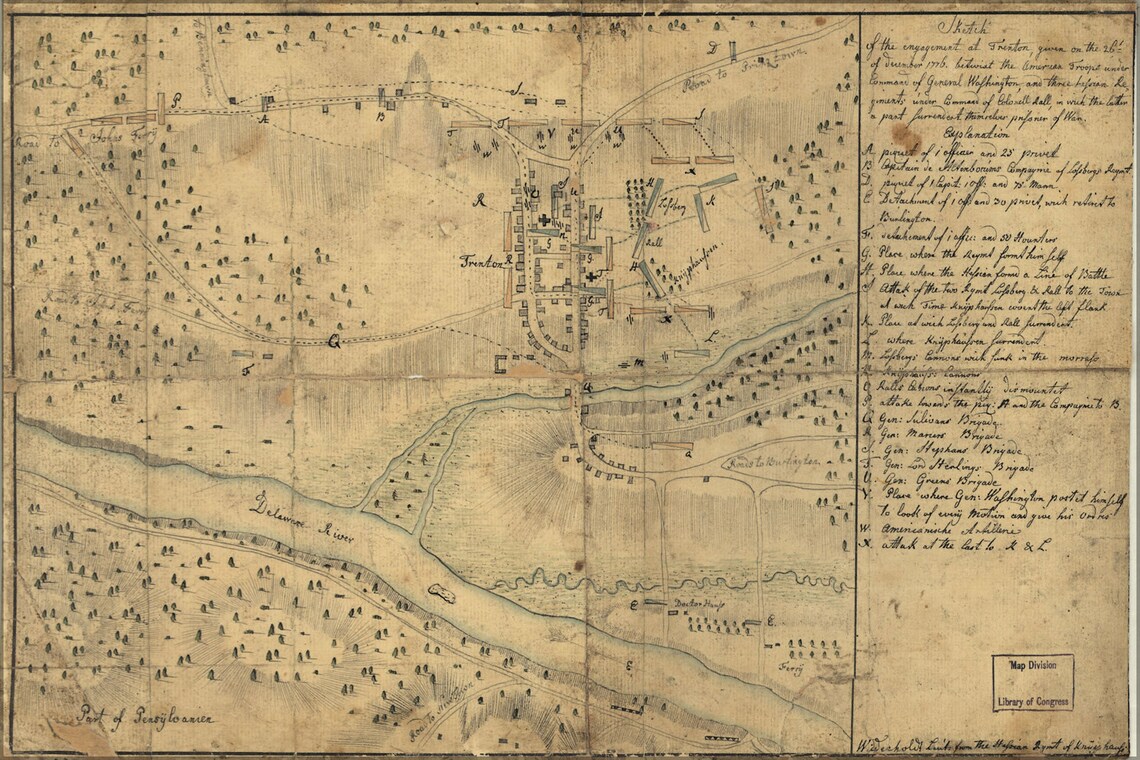 Sketch
of the engagement at Trenton, given on the 26th
of december 1776. betwixt the American Troops under
Command of General Washington, and three Hessian Re,
giments under Command of Colonell Rall, in wich the latter
a part surrendert themselves prisoner of War.
Explanation
A. piquet of 1 officer and 25 privet
B Captain de Altenbocums Compagnie of Losbergs Regmt.
D. piquet of 1 Capit: 1 Offi: and 75 Mann.
E. Detachment of 1 Offi and 30 privet, wich retires to
Burlington.
F. detachement of 1 offic: and 50 Hounters
G. Place where the Regmt formt him self
H. Place where the Hessian formd a Line of Battle
J Attak of the two Regmt Losberg & Rall to the Town
at wich Time Knijphausen covert the left flank
K. Place at wich Losberg and Rall Surrendert.
L where Knijphausen Surrendert.
M. Losbergs Cannons wich sunk in the morress
N. Knijphausens Cannons
O Ralls Canons instantly dismountet
P. attake towards the piq: A and the Compagnie B.
Q Gen: Sulivans Brigade
R Gen: Marcers Brigade
S. Gen: Stephans Brigade
T. Gen: Lord Sterlings Brigade
U. Gen: Greens Brigade
V. Place where Gen: Washington postet himself
to look of every Motion and give his Ordres
W. Americanische Artillerie
X. attak at the last to K & L.
Map Division
Library of Congress
Wiederholdt Lieut: from the Hessian Rgmt of Knijphauss
D
Road to Prince Town
P
A
B
S
Road to
Johns Ferry
T
T
V
U
U
S
X
R
H
Losberg
K
S
Rall
H
Knijphausen
Trenton
R
G
G
G
X
L
M
Q
F
a
Roads to Burlington
Delaware River
E
Doctor Hauss
E
Ferry
E
Part of Pensylvanien